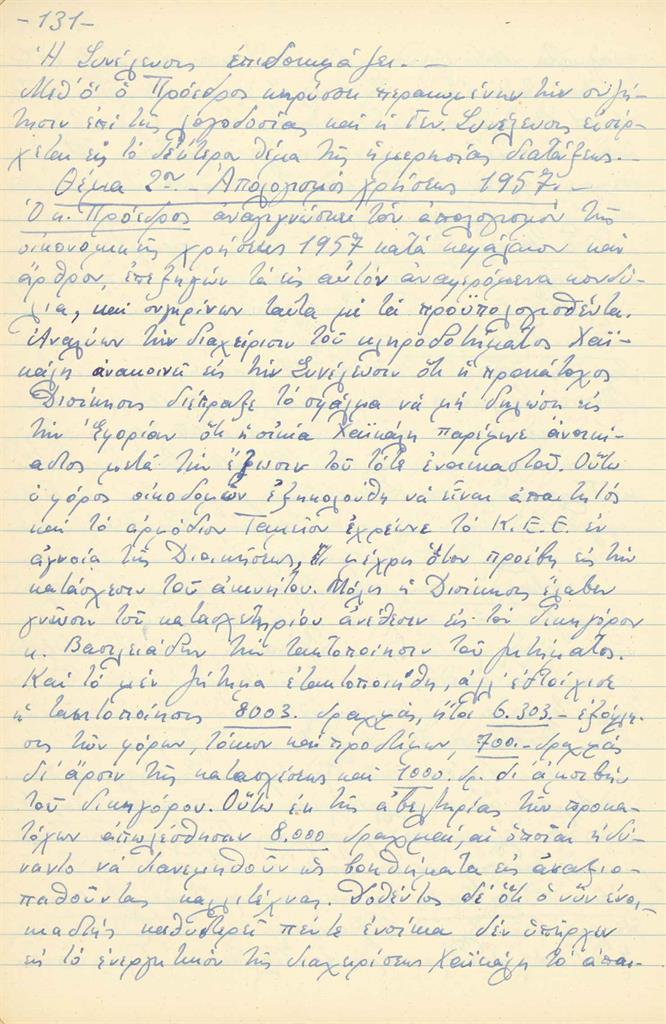 -131-
Ἡ Συνέλευσις ἐπιδοκιμάζει. -
Μεθ' ὅ ὁ Πρόεδρος κηρύσσει περαιωμένην τὴν συζή-
τησιν ἐπὶ τῆς λογοδοσίας καὶ ἡ Γεν. Συνέλευσις εἰσέρ-
χεται εἰς τὸ δεύτερον θέμα τῆς ἡμερησίας διατάξεως. -
Θέμα 2ον - Ἀπολογισμὸς χρήσεως 1957. -
Ὁ κ. Πρόεδρος ἀναγιγνώσκει τὸν ἀπολογισμὸν τῆς
οἰκονομικῆς χρήσεως 1957 κατὰ κεφάλαιον καὶ
ἄρθρον, ἐπεξηγῶν τὰ εἰς αὐτὸν ἀναφερόμενα κονδύ-
λια, καὶ συγκρίνων ταῦτα μὲ τὰ προϋπολογισθέντα.
Ἀναλύων τὴν διαχείρισιν τοῦ κληροδοτήματος Χαϊ-
κάλη ἀνακοινοῖ εἰς τὴν Συνέλευσιν ὅτι ἡ προκάτοχος
Διοίκησις διέπραξε τὸ σφάλμα νὰ μὴ δηλώσῃ εἰς
τὴν Ἐφορίαν ὅτι ἡ οἰκία Χαϊκάλη παρέμεινε ἀνοικί-
αστος μετὰ τὴν ἔξωσιν τοῦ τότε ἐνοικιαστοῦ. Οὕτω
ὁ φόρος οἰκοδομῶν ἐξηκολούθη νὰ εἶναι ἀπαιτητός
καὶ τὸ ἁρμόδιον Ταμεῖον ἐχρέωνε τὸ Κ.Ε.Ε. ἐν
ἀγνοίᾳ τῆς Διοικήσεως, μέχρις ὅτου προέβη εἰς τὴν
κατάσχεσιν τοῦ ἀκινήτου. Μόλις ἡ Διοίκησις ἔλαβεν
γνῶσιν τοῦ κατασχετηρίου ἀνέθεσεν εἰς τὸν δικηγόρον
κ. Βασιλειάδην τὴν τακτοποίησιν τοῦ ζητήματος.
Καὶ τὸ μὲν ζήτημα ἐτακτοποιήθη, ἀλλ' ἐστοίχισε
ἡ τακτοποίησις 8003. δραχμάς, ἤτοι 6.303.- ἐξόφλη-
σις τῶν φόρων, τόκων καὶ προστίμων, 700.- δραχμὰς
δι' ἄρσιν τῆς κατασχέσεως καὶ 1000. δρ. δι' ἀμοιβὴν
τοῦ δικηγόρου. Οὕτω ἐκ τῆς ἀβελτηρίας τῶν προκα-
τόχων ἀπωλέσθησαν 8.000 δραχμαί, αἱ ὁποῖαι ἠδύ-
ναντο νὰ διανεμηθοῦν ὡς βοηθήματα εἰς ἀναξιο-
παθοῦντας καλλιτέχνας. Δοθέντος δὲ ὅτι ὁ νῦν ἐνοι-
κιαστής καθυστερεῖ πέντε ἐνοίκια δὲν ὑπῆρχεν
εἰς τὸ ἐνεργητικὸν τῆς διαχειρίσεως Χαϊκάλη τὸ ἀπαι-